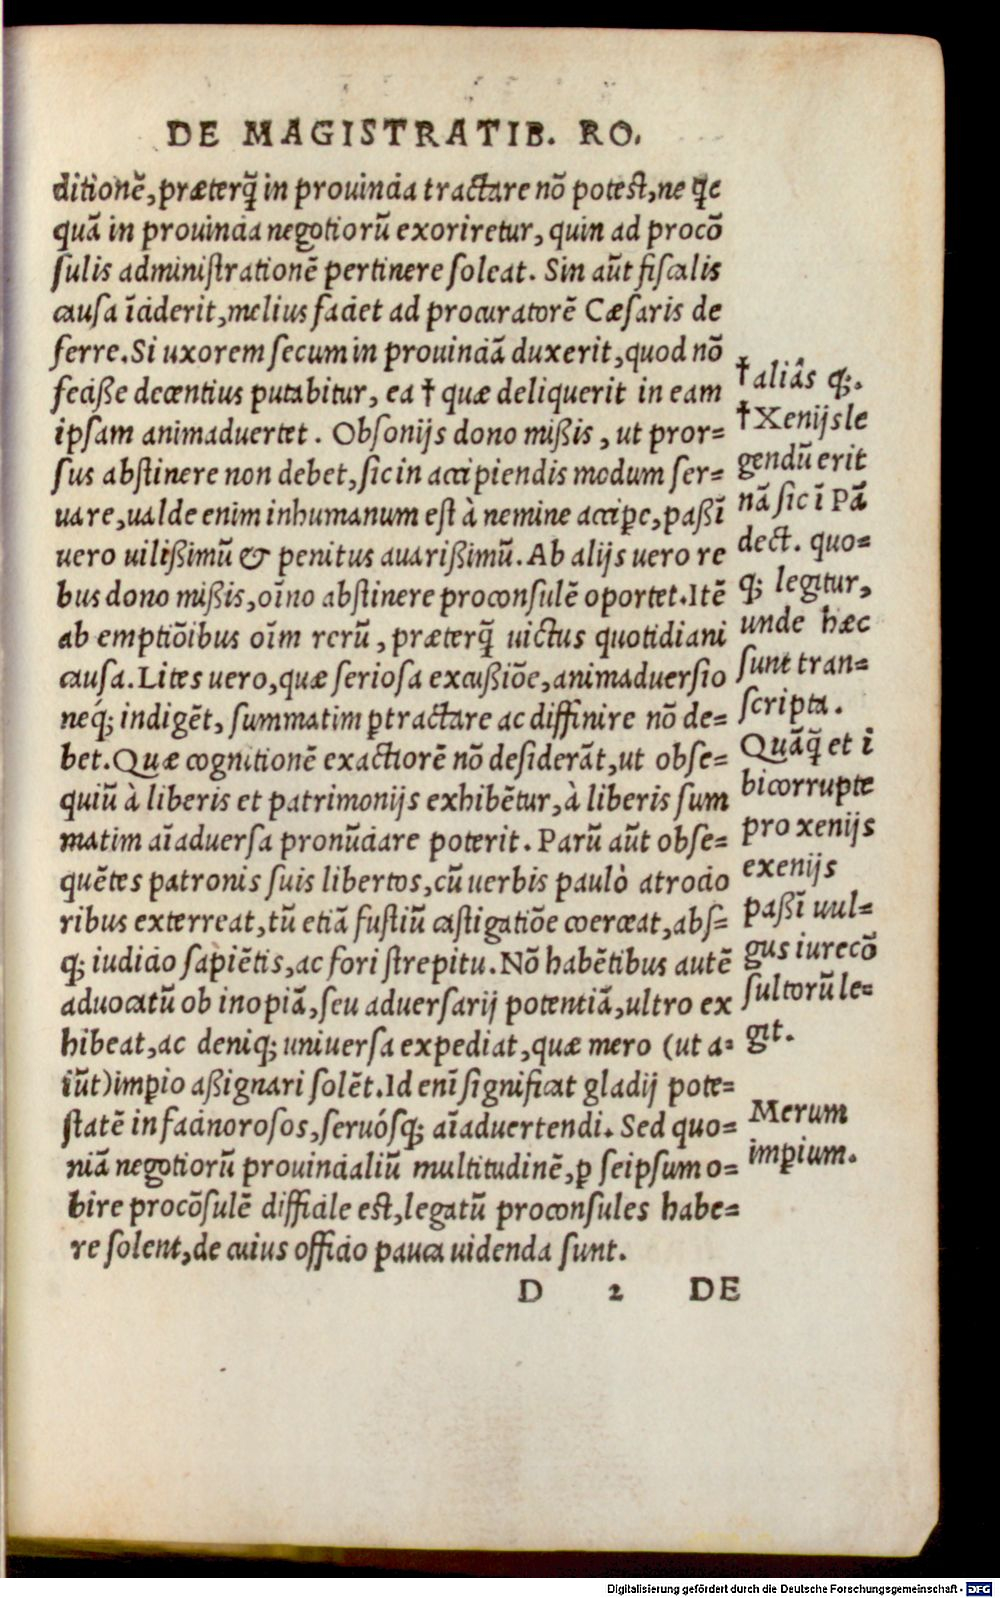 DE MAGISTRATIB. RO.
ditionē, præterq̃ in prouincia tractare nō potest, ne q̃c
quā in prouincia negotiorū exoriretur, quin ad procō
sulis administrationē pertinere soleat. Sin aūt fiscalis
causa īciderit, melius faciet ad procuratorē Cæsaris de
ferre. Si uxorem secum in prouinciā duxerit, quod nō
fecisse decentius putabitur, ea † quæ deliquerit in eam
ipsam animaduertet. Obsonijs dono mißis, ut pror=
sus abstinere non debet, sic in accipiendis modum ser=
uare, ualde enim inhumanum est à nemine accipe, paßī
uero uilißimū & penitus auarißimū. Ab alijs uero re
bus dono mißis, oīno abstinere proconsulē oportet. Itē
ab emptiōibus oīm rerū, præterq̃ uictus quotidiani
causa. Lites uero, quæ seriosa excußiōe, animaduersio
neq́; indigēt, summatim ꝑtractare ac diffinire nō de=
bet. Quæ cognitionē exactiorē nō desiderāt, ut obse=
quiū à liberis et patrimonijs exhibētur, à liberis sum
matim aīaduersa pronūciare poterit. Parū aūt obse=
quētes patronis suis libertos, cū uerbis paulò atrocio
ribus exterreat, tū etiā fustiū castigatiōe coerceat, abs=
q; iudicio sapiētis, ac fori strepitu. Nō habētibus autē
aduocatū ob inopiā, seu aduersarij potentiā, ultro ex
hibeat, ac deniq; uniuersa expediat, quæ mero (ut a=
iūt) imꝑio aßignari solēt. Id enī significat gladij pote=
statē in facinorosos, seruósq; aīaduertendi. Sed quo=
niā negotiorū prouincialiū multitudinē, ꝑ seipsum o=
bire procōsulē difficile est, legatū proconsules habe=
re solent, de cuius officio pauca uidenda sunt.
D 2 DE
† aliâs q;.
† Xenijs le
gendū erit
nā sic ī Pā
dect. quo=
q; legitur,
unde hæc
sunt tran=
scripta.
Quāq̃ et i
bi corrupte
pro xenijs
exenijs
paßī uul=
gus iurecō
sultorū le=
git.
Merum
imꝑium.
Digitalisierung gefördert durch die Deutsche Forschungsgemeinschaft - DFG